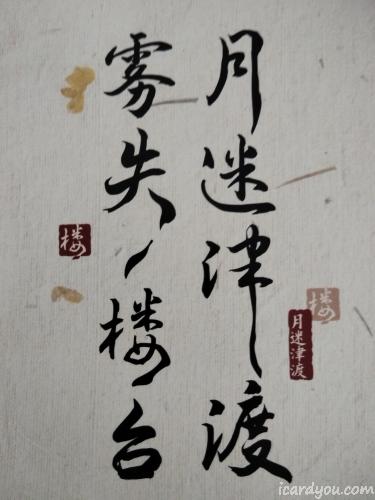 月迷津渡
雾失楼台
楼
月迷津渡
楼
icardyou.com